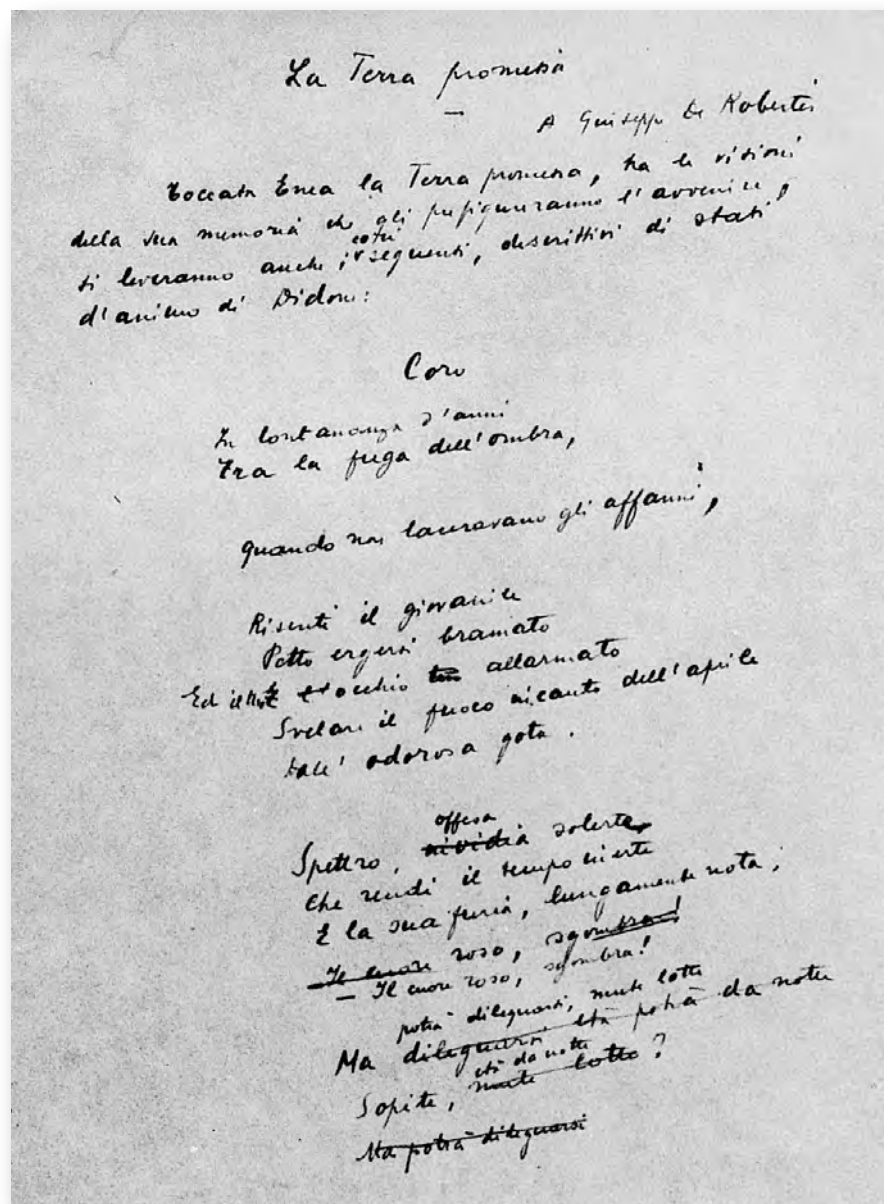 La Terra promessa
—
A Giuseppe De Robertis
Toccata Enea la Terra promessa, tra le visioni
della sua memoria che gli prefigureranno l'avvenire,
si leveranno anche i cori seguenti, descrittivi di stati
d'animo di Didone:
Coro
In lontananza d'anni
Tra la fuga dell'ombra,
Quando non laceravano gli affanni,
Risenti il giovanile
Petto ergersi bramato
Ed il tuo occhio allarmato
Svelare il fuoco incauto dell'aprile
Dall'odorosa gota.
offesa
Spettro, invidia solerte
Che rendi il tempo inerte
E la sua furia, lungamente nota,
Il cuore roso, sgombra!
— Il cuore roso, sgombra!
potrà dileguarsi, mute lotte
Ma dileguarsi età potrà da notte
età da notte
Sopite, mute lotte?
Ma potrà dileguarsi